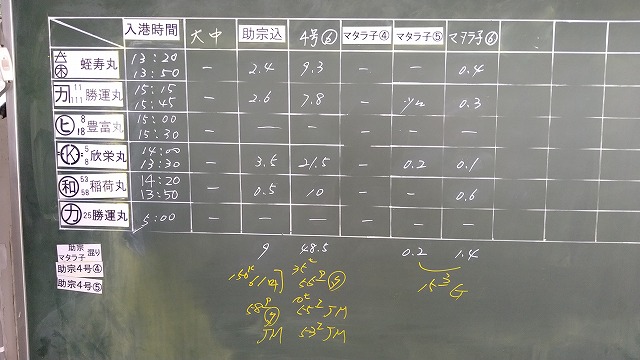 入港時間 大中 助宗込 4号⑥ マタラ子④ マタラ子⑤ マタラ子⑥
蛭寿丸 13:20 13:50 – 2.4 9.3 – – 0.4
カ 11 111 勝運丸 15:15 15:45 – 2.6 7.8 – 0.3
ヒ 8 18 豊富丸 15:00 15:30 – – – – – –
K 5 8 欣栄丸 14:00 13:30 – 3.5 21.5 – 0.2 0.1
和 53 58 稲荷丸 14:20 13:50 – 0.5 10 – – 0.6
カ 25 勝運丸 5:00 – – – – – –
助宗 マタラ子 混り
9 48.5 0.2 1.4
助宗4号④
助宗4号⑤
JM
JM 53² JM